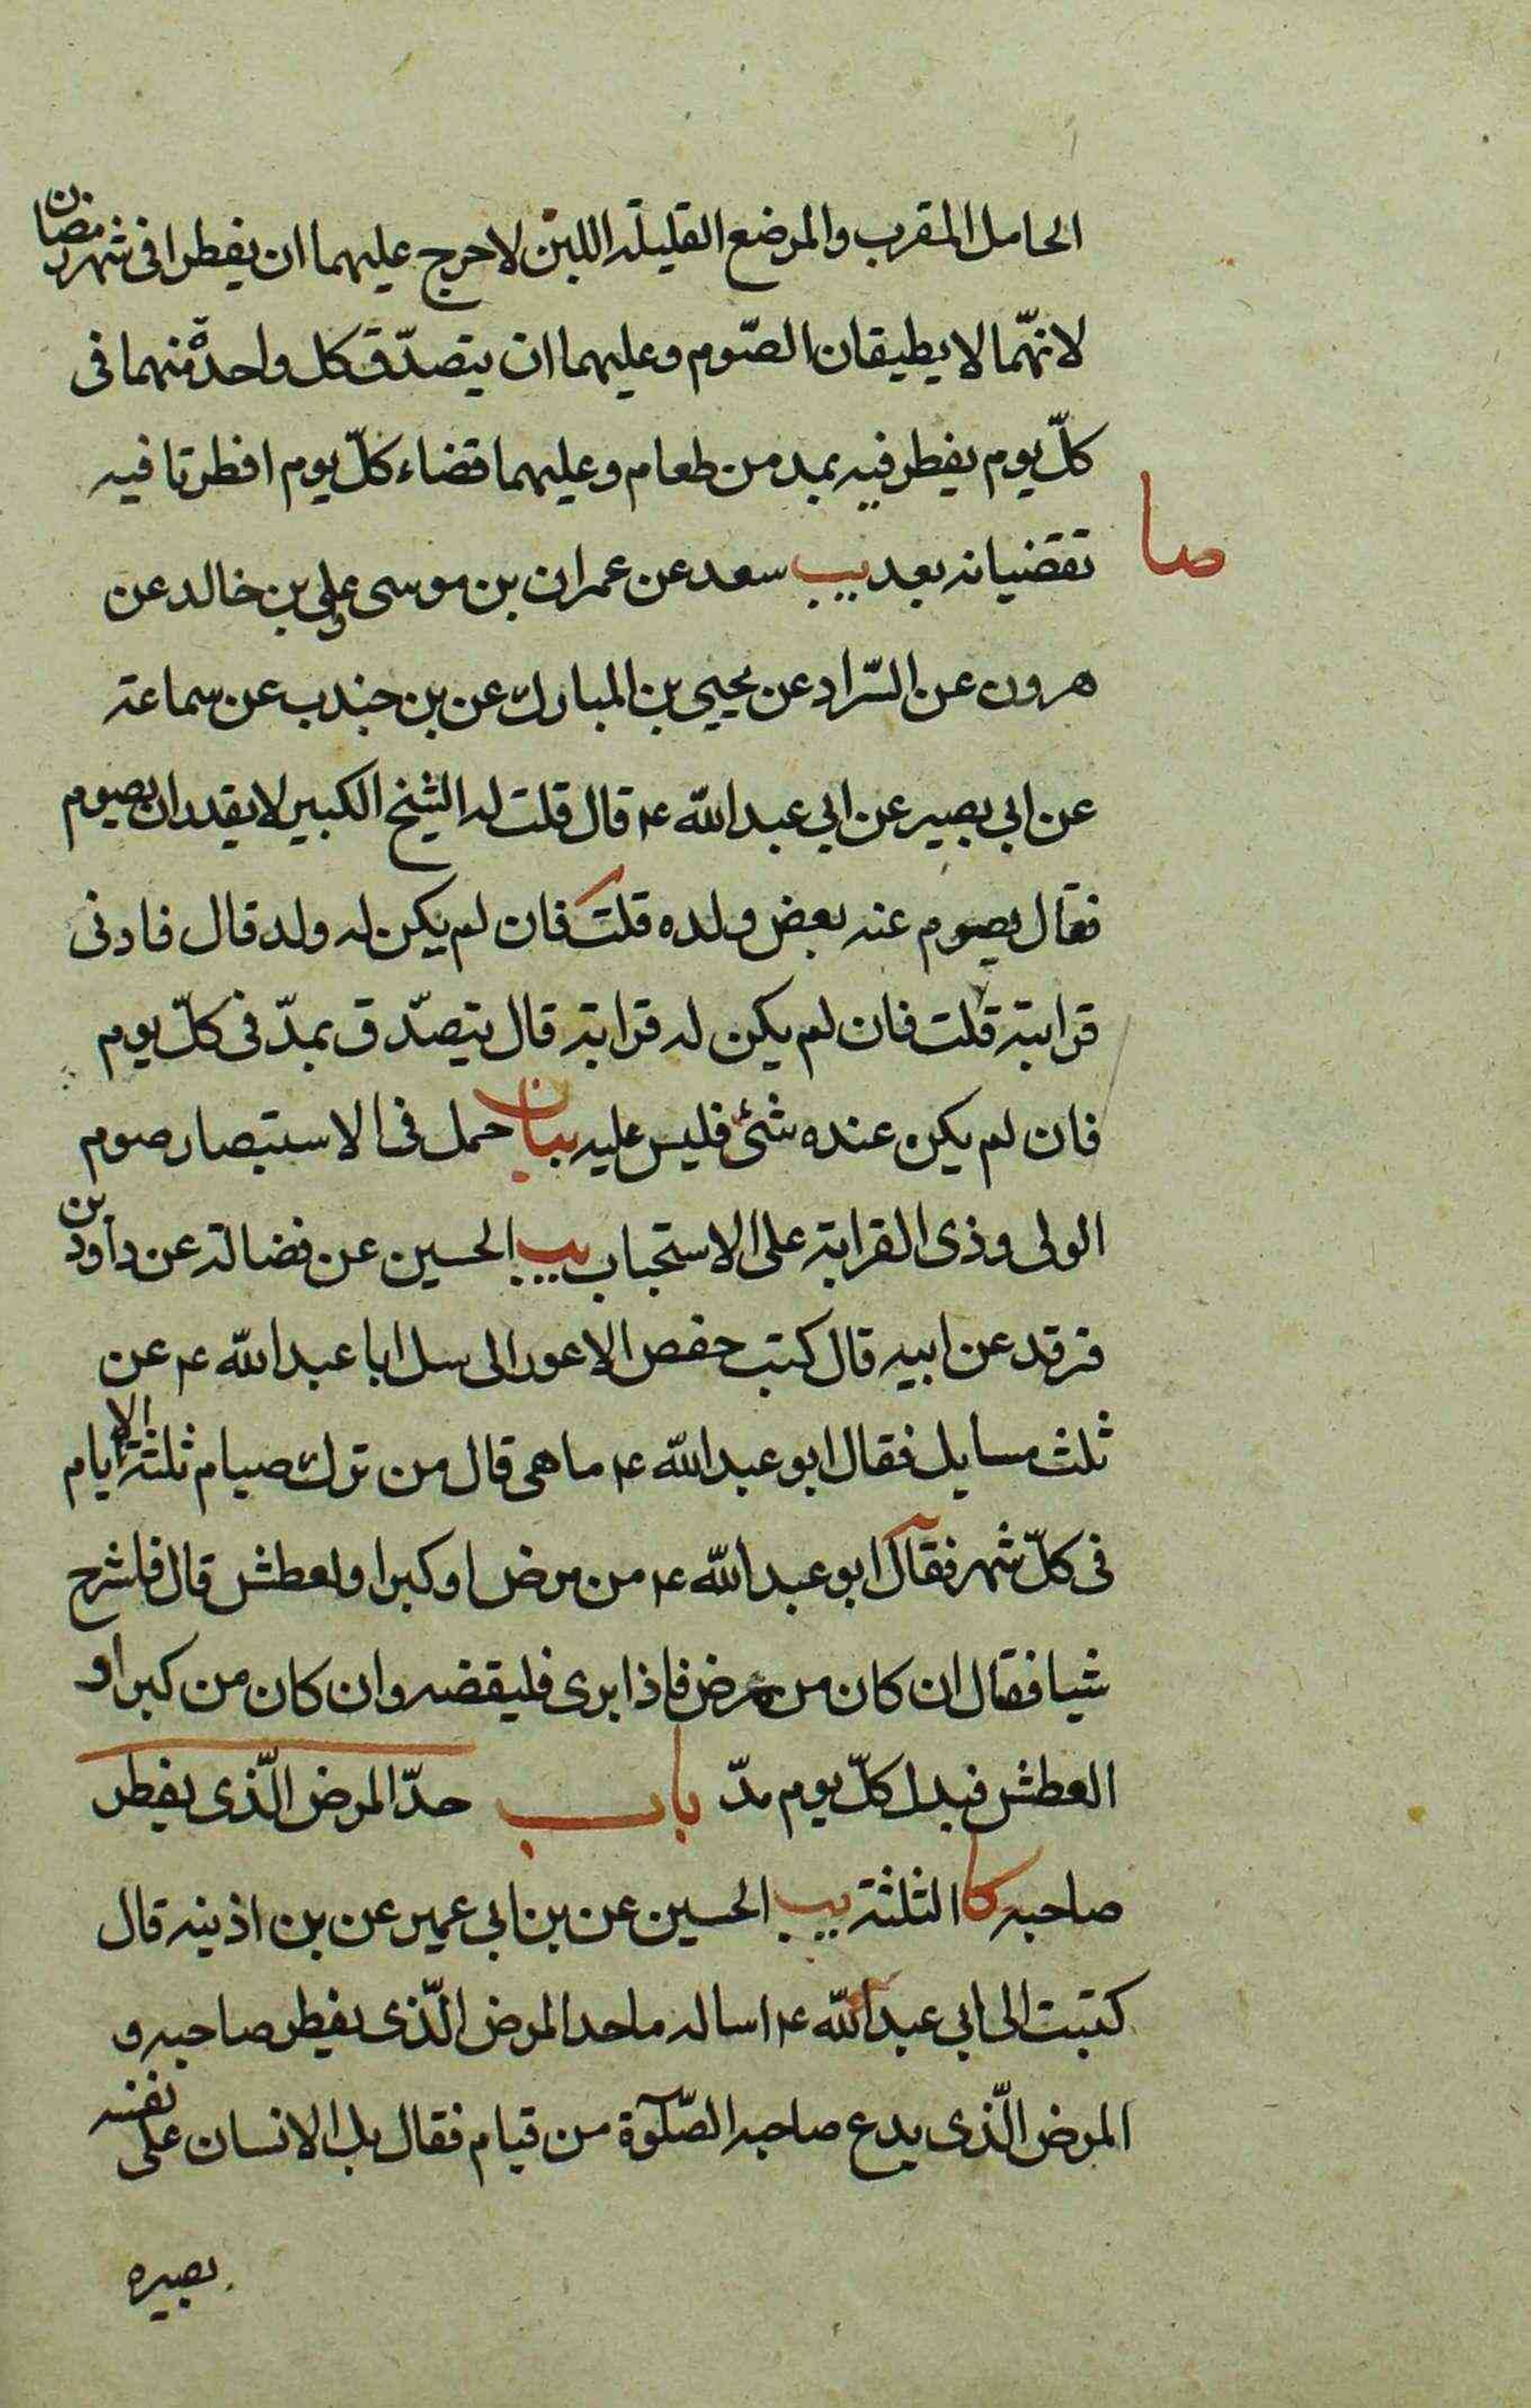 الحامل المقرب والمرضع القليلة اللبن لا حرج عليهما ان يفطرا فى شهر رمضان
لانهّما لا يطيقان الصّوم وعليهما ان يتصدّق كل واحدة منهما فى
كلّ يوم يفطر فيه بمد من طعام وعليهما قضاء كلّ يوم افطرتا فيه
صا
تقضيانه بعد يب سعد عن عمران بن موسى وعلي بن خالد عن
هرون عن السّراد عن يحيى بن المبارك عن بن جندب عن سماعة
عن ابي بصير عن ابي عبد الله ع قال قلت له الشيخ الكبير لا يقدر ان يصوم
فقال يصوم عنه بعض ولده قلت فان لم يكن له ولد قال فادنى
قرابته قلت فان لم يكن له قرابة قال يتصدّق بمدّ فى كلّ يوم
فان لم يكن عنده شئ فليس عليه بيان حمل فى الاستبصار صوم
الولى وذى القرابة على الاستحباب يب الحسين عن فضالة عن داود بن
فرقد عن ابيه قال كتب حفص الاعور الى سل ابا عبد الله ع عن
ثلث مسايل فقال ابو عبد الله ع ما هى قال من ترك صيام ثلثة الايام
فى كلّ شهر فقال ابو عبد الله ع من مرض او كبر او لعطش قال فاشرح
شيا فقال ان كان من مرض فاذا برى فليقضه وان كان من كبر او
العطش فبدل كلّ يوم مدّ باب حدّ المرض الّذى يفطر
صاحبه كا الثلثة يب الحسين عن بن ابي عمير عن بن اذينه قال
كتبت الى ابي عبد الله ع اساله ما حد المرض الّذى يفطر صاحبه و
المرض الّذى يدع صاحبه الصّلوة من قيام فقال بل الانسان على نفسه
بصيره